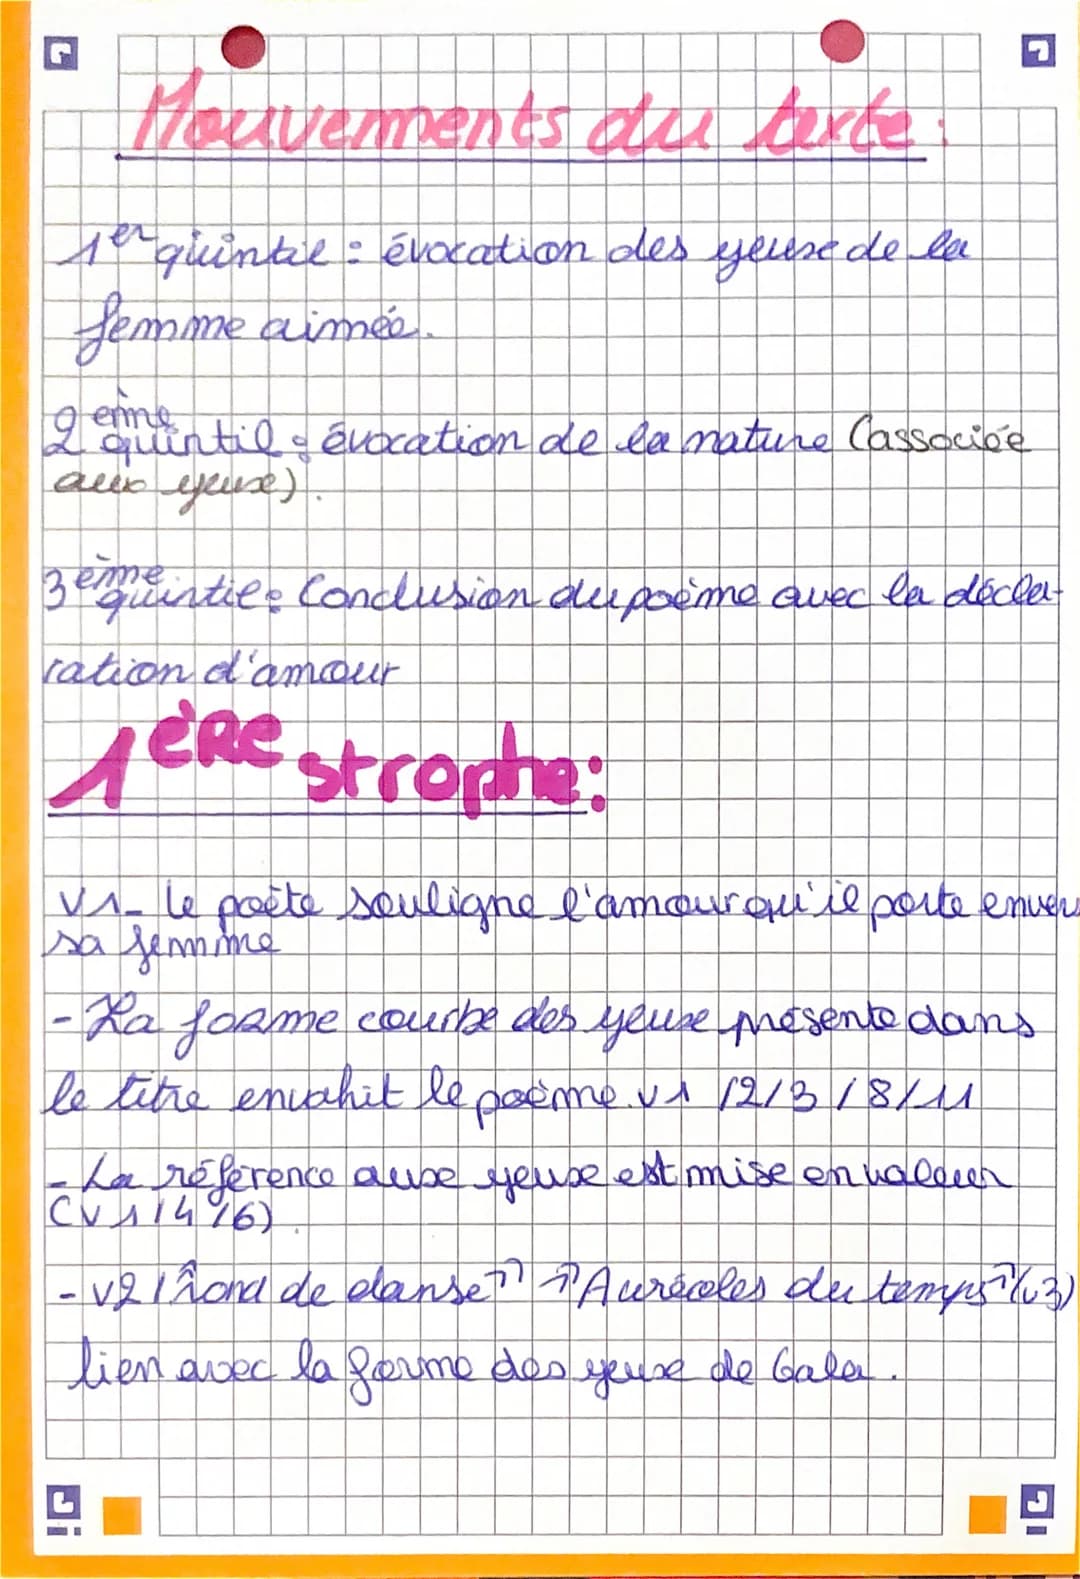 Mouvements du texte :
1er quintil : évocation des yeux de la
femme aimée.
2eme quintil : évocation de la nature (associée
aux yeux).
3ème quintil : Conclusion du poème avec la décla-
ration d'amour
1ÈRE strophe :
V1- le poète souligne l'amour qu'il porte envers
sa femme
- La forme courbe des yeux présente dans
le titre envahit le poème. v1 /2/3 /8/11
- La référence aux yeux est mise en valeur
(v 1/4 %6).
- v2 / "Rond de danse" "Auréoles du temps" (v3)
lien avec la forme des yeux de Gala.